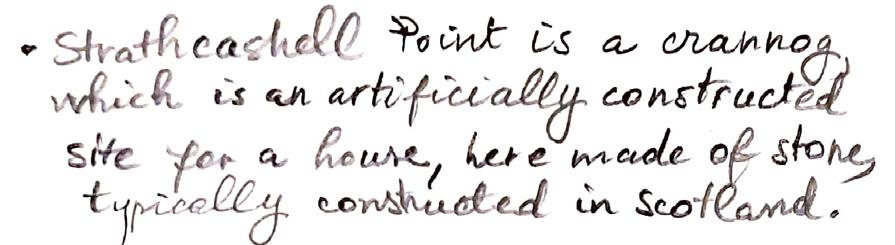 • Strathcashell Point is a crannog,
which is an artificially constructed
site for a house, here made of stone,
typically constructed in scotland.